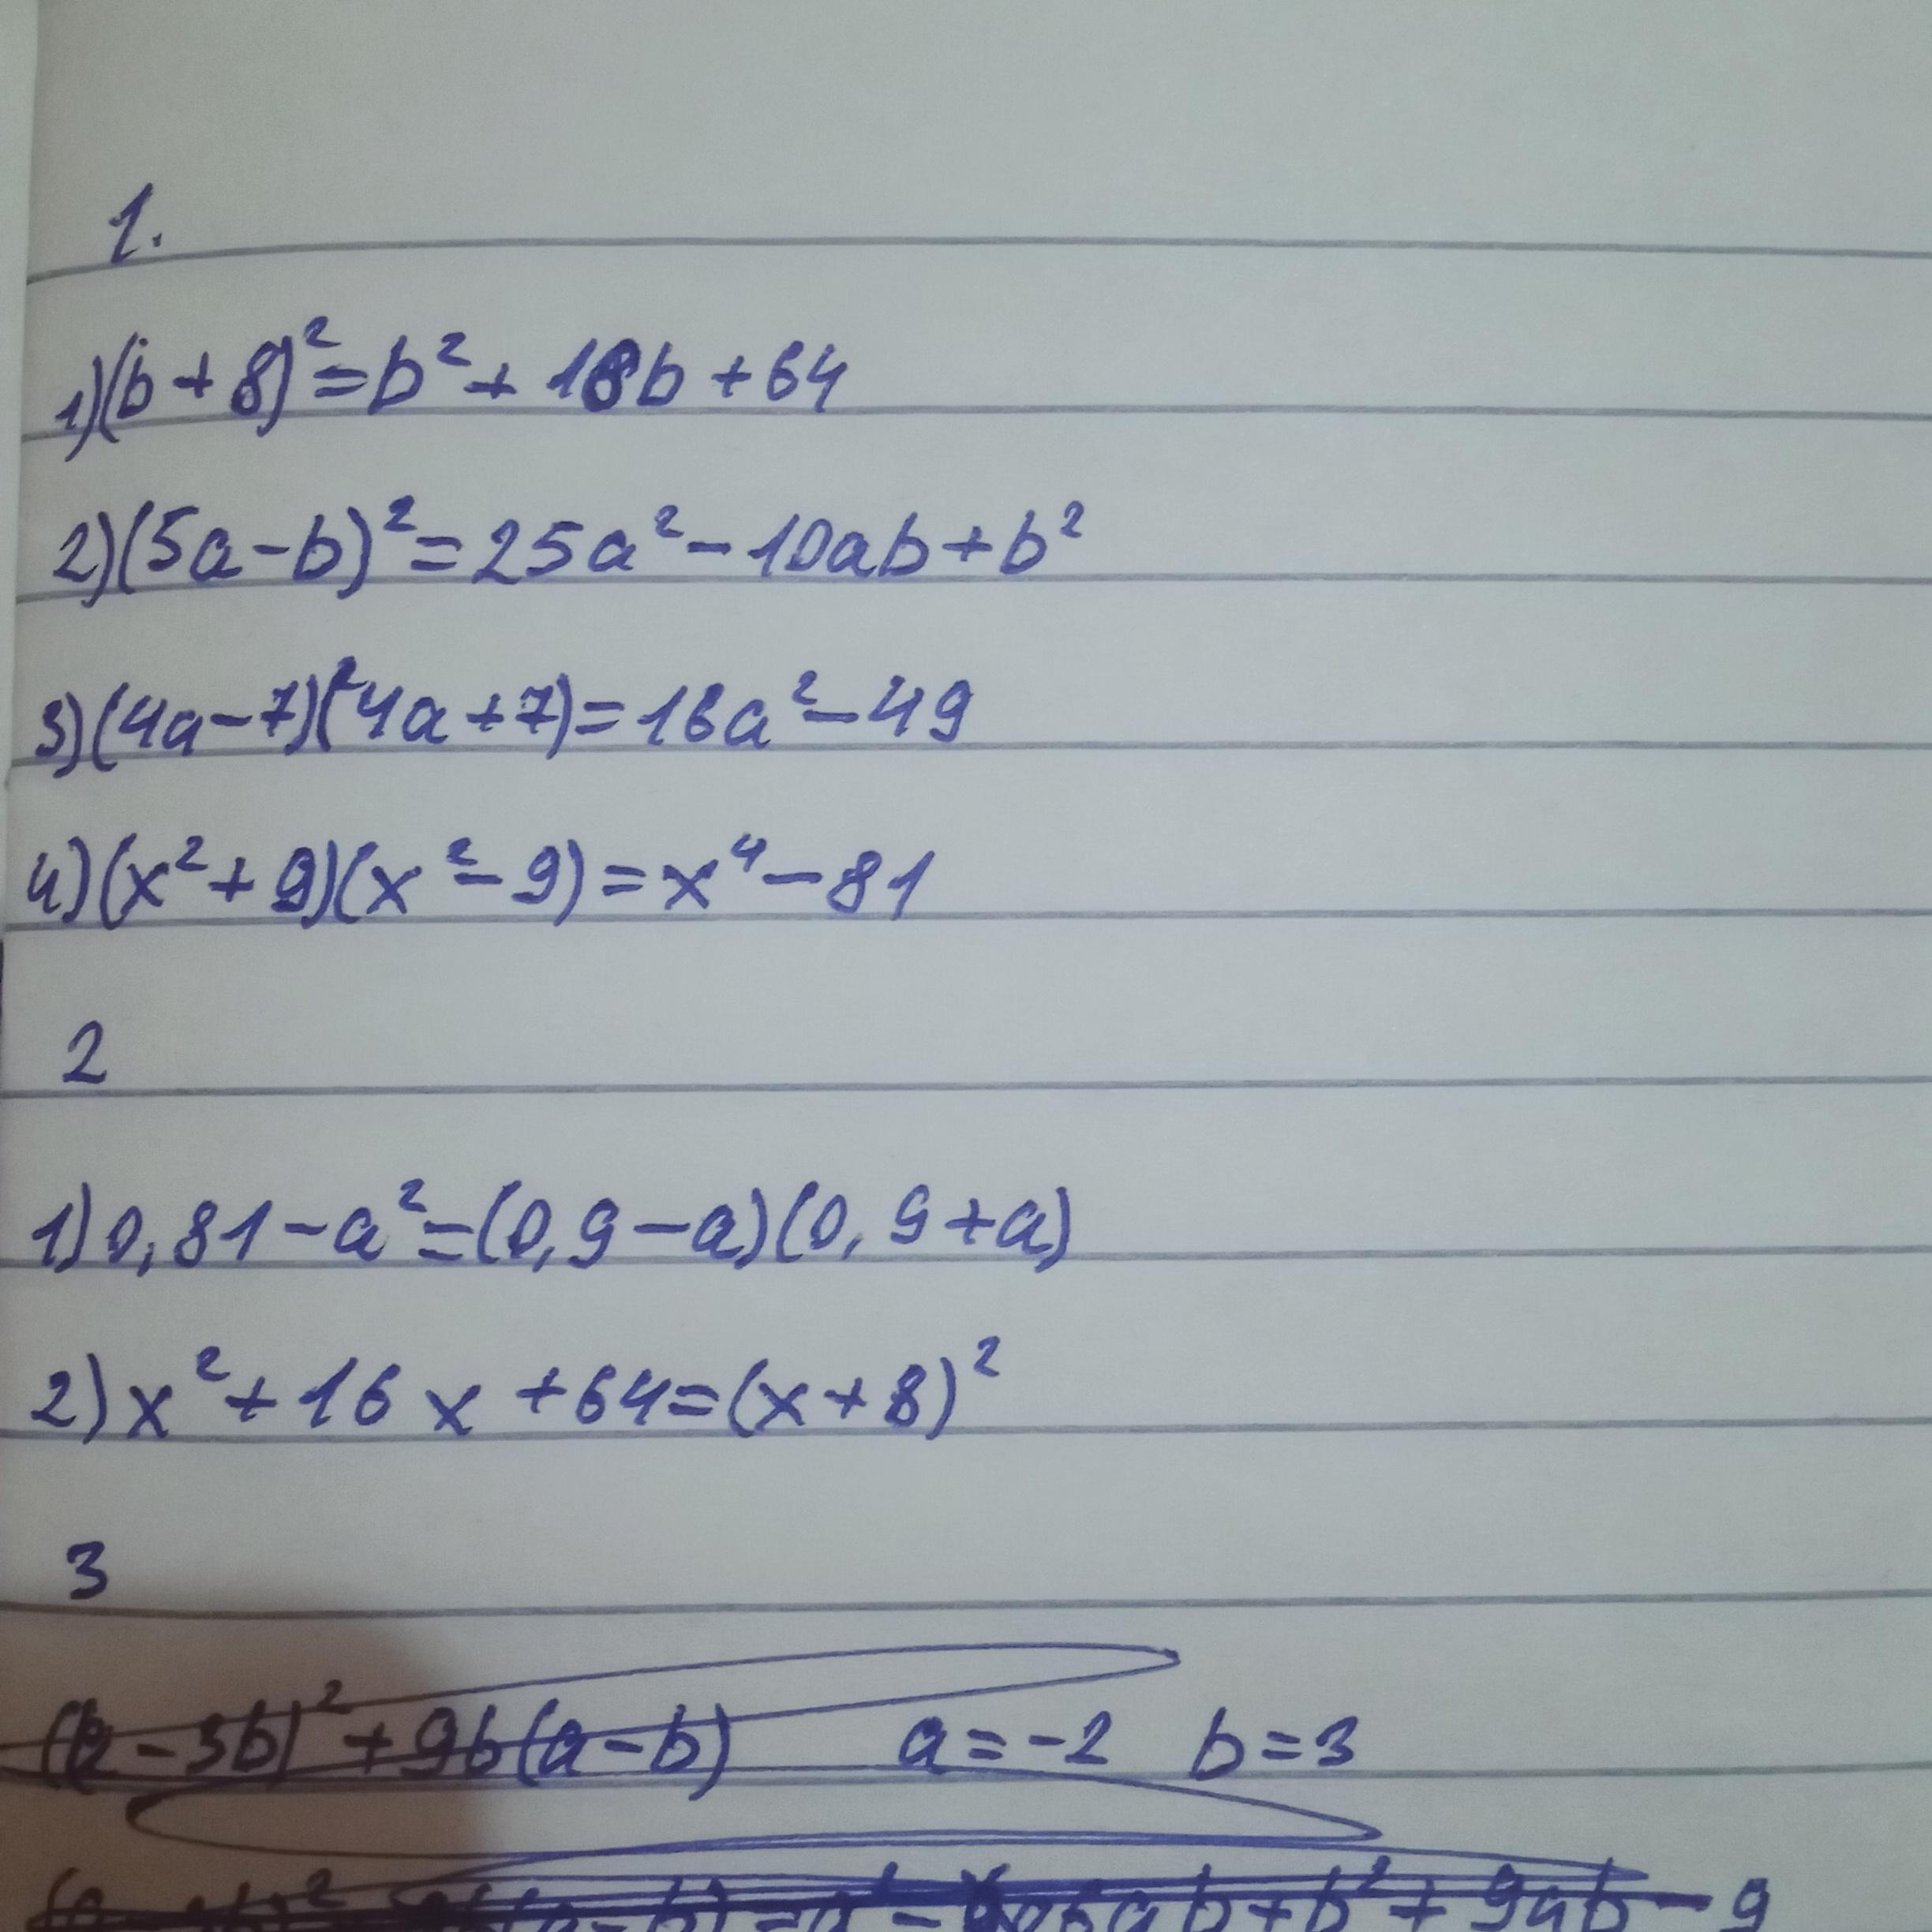 1.
1)(b+8)²=b²+16b+64
2)(5a-b)²=25a²-10ab+b²
3)(4a-7)(4a+7)=16a²-49
4)(x²+9)(x²-9)=x⁴-81
2
1)0,81-a²=(0,9-a)(0,9+a)
2)x²+16x+64=(x+8)²
3
(a-3b)²+9b(a-b) a=-2 b=3
ab+b²+9ab-9